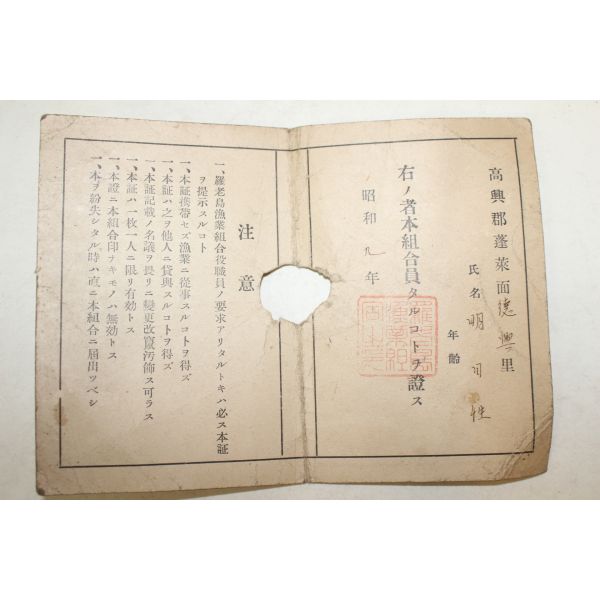 高興郡蓬萊面德興里
年齡
氏名 明
右ノ者本組合員タルコトヲ證ス
昭和九年
注意
一、羅老島漁業組合役職員ノ要求アリタルトキハ必ス本証
ヲ提示スルコト
一、本証携帯セズ漁業ニ従事スルコトヲ得ズ
一、本証ハ之ヲ他人ニ貸與スルコトヲ得ズ
一、本証記載ノ名義ヲ畏リニ變更改竄汚飾ス可ラス
一、本証ハ一枚一人ニ限リ有効トス
一、本證ニ本組合印ヲキモノハ無効トス
一、本ヲ紛失シタル時ハ直ニ本組合ニ届出ツベシ